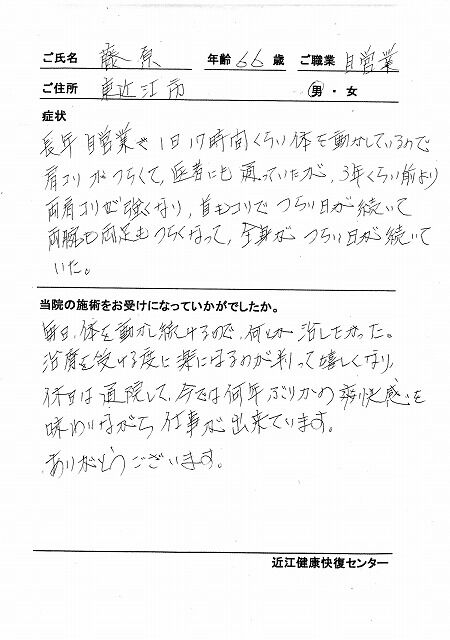 ご氏名 藤原 年齢 66 歳 ご職業 自営業
ご住所 東近江市 男・女
症状
長年自営業や1日17時間くらい体を動かしているので
肩コリがつらくて、医者にも通っていたが、3年くらい前より
両肩コリが強くなり、首もコリでつらい日が続いて
両腕も両足もつらくなって、全身がつらい日が続いて
いた。
当院の施術をお受けになっていかがでしたか。
毎日、体を動かし続けるので、何とか治したかった。
治療を受ける度に楽になるのが判って嬉しくなり、
休日は通院して、今では何年ぶりかの爽快感を
味わいながら仕事が出来ています。
ありがとうございます。
近江健康快復センター